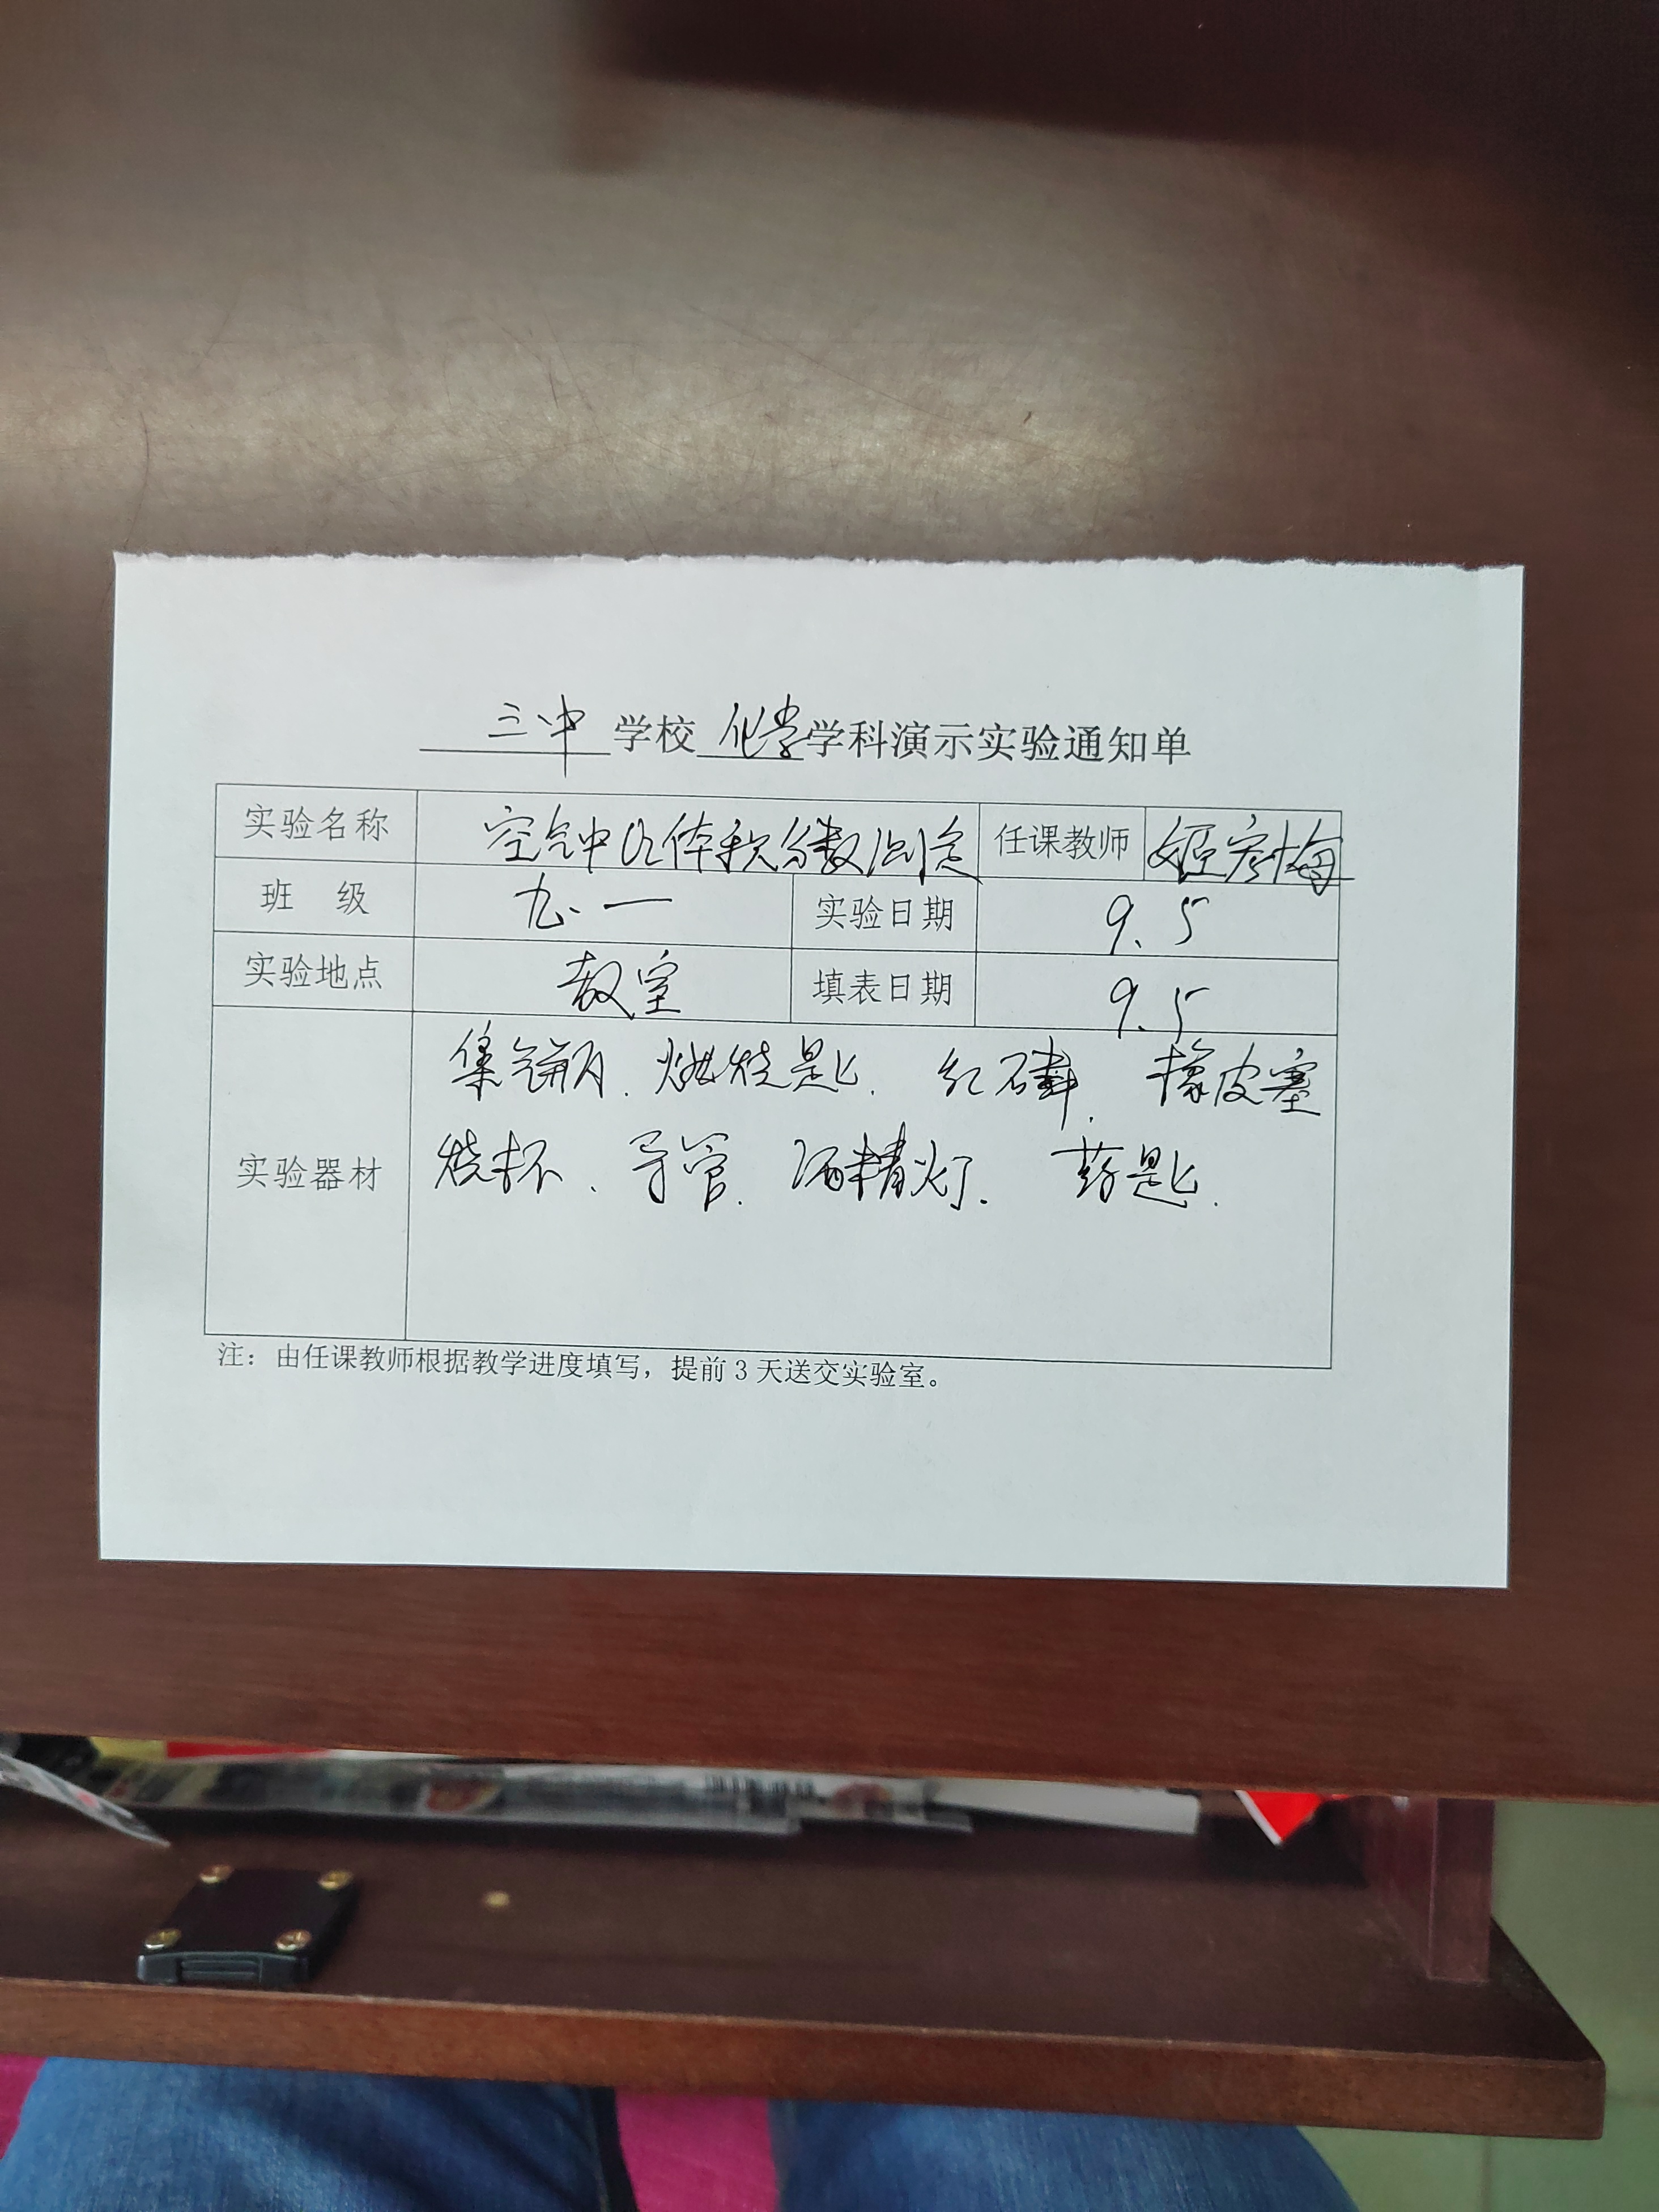 三中 学校 化学 学科演示实验通知单
实验名称 空气中O2体积分数测定 任课教师 姬宏梅
班 级 九.一 实验日期 9.5
实验地点 教室 填表日期 9.5
集气瓶. 燃烧匙. 红磷. 橡皮塞
实验器材 烧杯. 导管. 酒精灯. 药匙.
注：由任课教师根据教学进度填写，提前3天送交实验室。